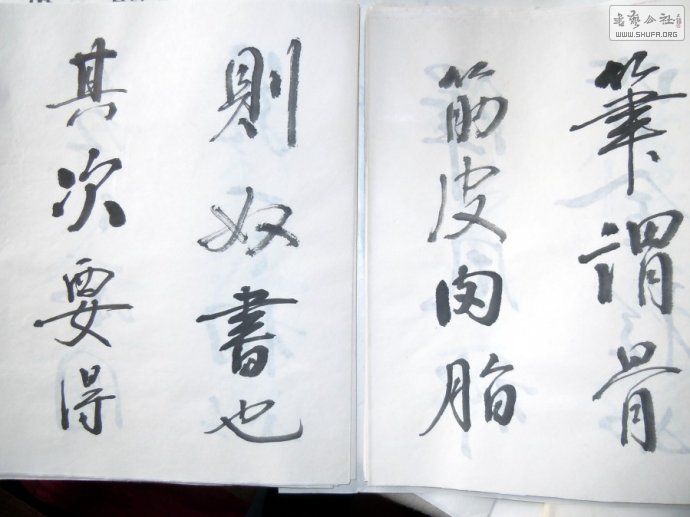 筆謂骨
筋皮肉脂
則奴書也
其次要得
书艺公社
WWW.SHUFA.ORG